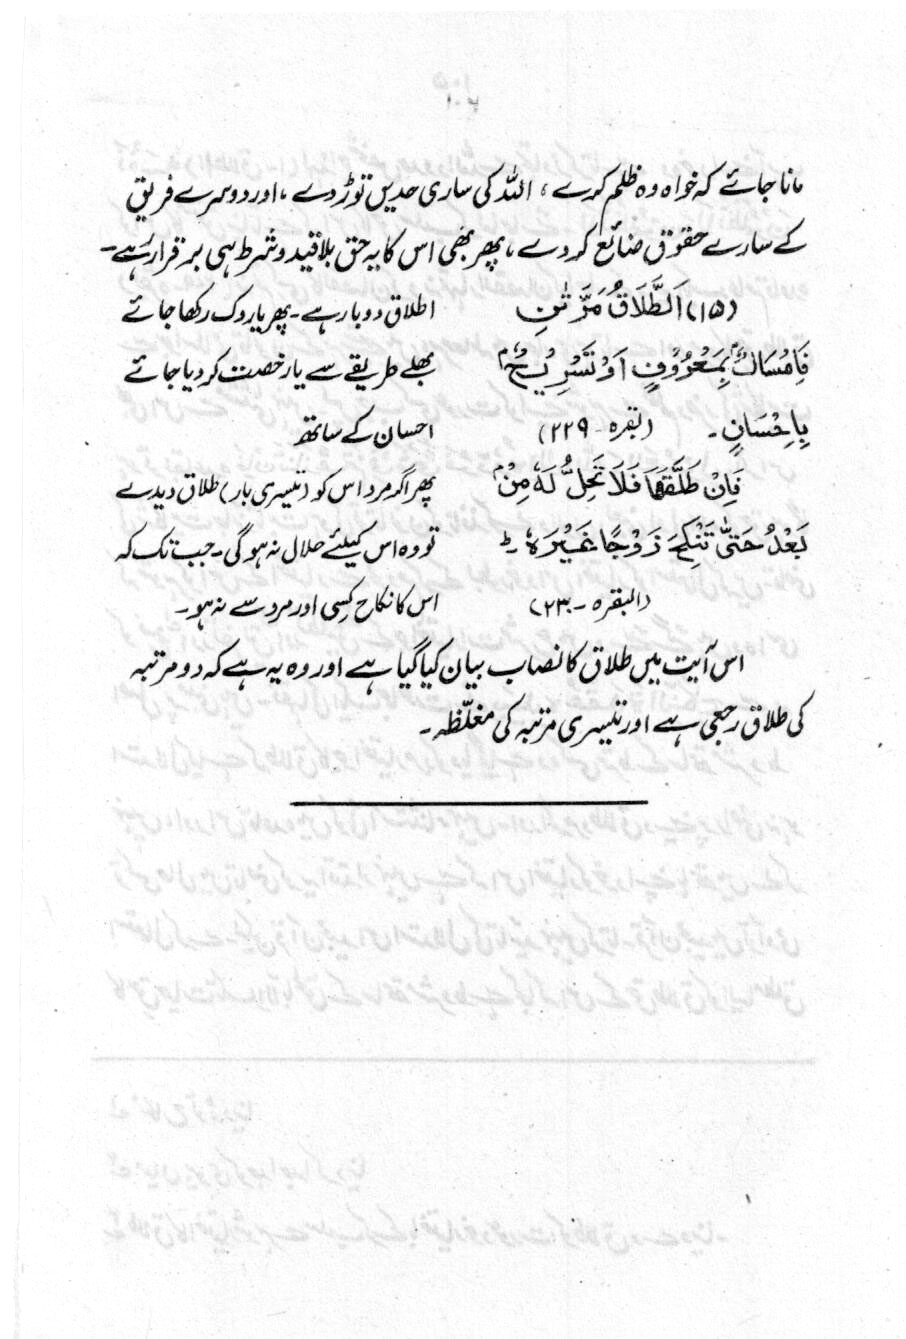 مانا جائے کہ خواہ وہ ظلم کرے، اللہ کی ساری حدیں توڑ دے، اور دوسرے فریق
کے سارے حقوق ضائع کر دے، پھر بھی اس کا یہ حق بلا قید و شرط ہی برقرار رہے۔
(۱۵) اَلطَّلَاقُ مَرَّتٰنِ
اطلاق دو بار ہے۔ پھر یا روک رکھا جائے
فَاِمْسَاكٌ بِمَعْرُوْفٍ اَوْ تَسْرِيْحٌ
بھلے طریقے سے یا رخصت کر دیا جائے
بِاِحْسَانٍ۔ (بقرہ۔ ۲۲۹)
احسان کے ساتھ
فَاِنْ طَلَّقَهَا فَلَا تَحِلُّ لَهٗ مِنْ
پھر اگر مرد اس کو (تیسری بار) طلاق دیدے
بَعْدُ حَتّٰى تَنْكِحَ زَوْجًا غَيْرَهٗ ط
تو وہ اس کیلئے حلال نہ ہو گی۔ جب تک کہ
(البقرہ۔ ۲۳۰)
اس کا نکاح کسی اور مرد سے نہ ہو۔
اس آیت میں طلاق کا نصاب بیان کیا گیا ہے اور وہ یہ ہے کہ دو مرتبہ
کی طلاق رجعی ہے اور تیسری مرتبہ کی مغلّظہ۔